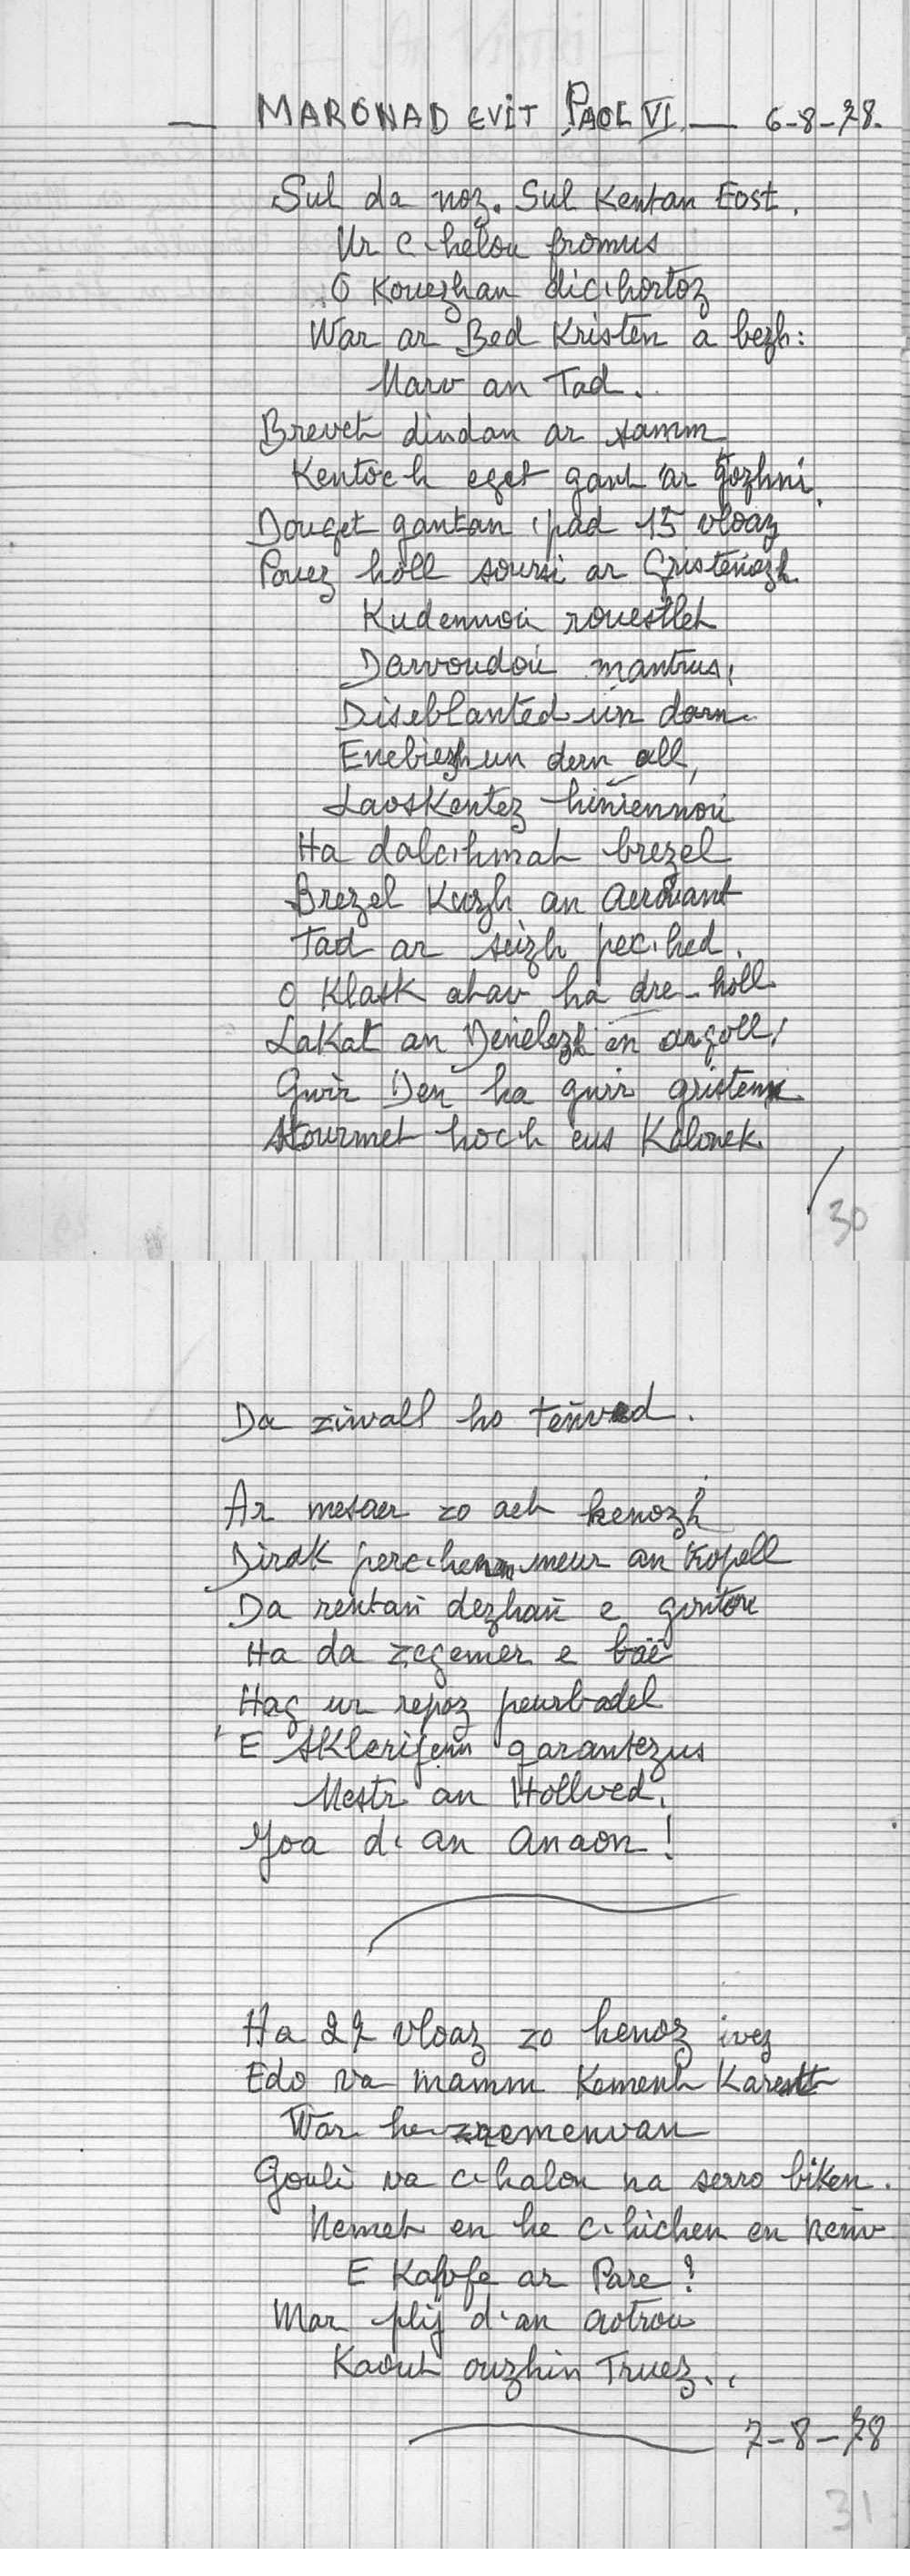 — MARONAD EVIT PAOL VI — 6-8-78.
Sul da noz. Sul Kentan Eost.
Ur c'helou fromus
O Kouezhan dic'hortoz
War ar Bed Kristen a bezh:
Marv an Tad..
Brevet dindan ar samm
Kentoc'h eget gant ar gozhni.
Douget gantan 'pad 15 vloaz
Pouez holl soursi ar Gristeniezh.
Kudennoù rouestlet
Darvoudoù mantrus,
Diseblanted un darn
Enebiezh un darn all,
Laoskentez hiniennoù
Ha dalc'hmat brezel
Brezel Kuzh an Aerouant
Tad ar seizh pec'hed.
O Klask atav ha dre-holl
Lakat an Denelezh en argoll!
Gwir Den ha gwir gristen
Stourmet hoc'h eus Kalonek
30
Da ziwall ho tenved.
Ar mesaer zo aet henozh
Dirak perc'henn meur an tropell
Da rentañ dezhañ e gontoù
Ha da zegemer e baë
Hag ur repoz peurbadel
E sklerijenn garantezus
Mestr an Hollved.
Joa d'an anaon!
Ha 27 vloaz zo henoz ivez
Edo va mamm Kement Karet
War he zremenvan
Gouli va c'halon na serro biken.
Nemet en he c'hichen en Neñv
E Kaffe ar Pare!
Mar plij d'an aotrou
Kaout ouzhin Truez..
7-8-78
31